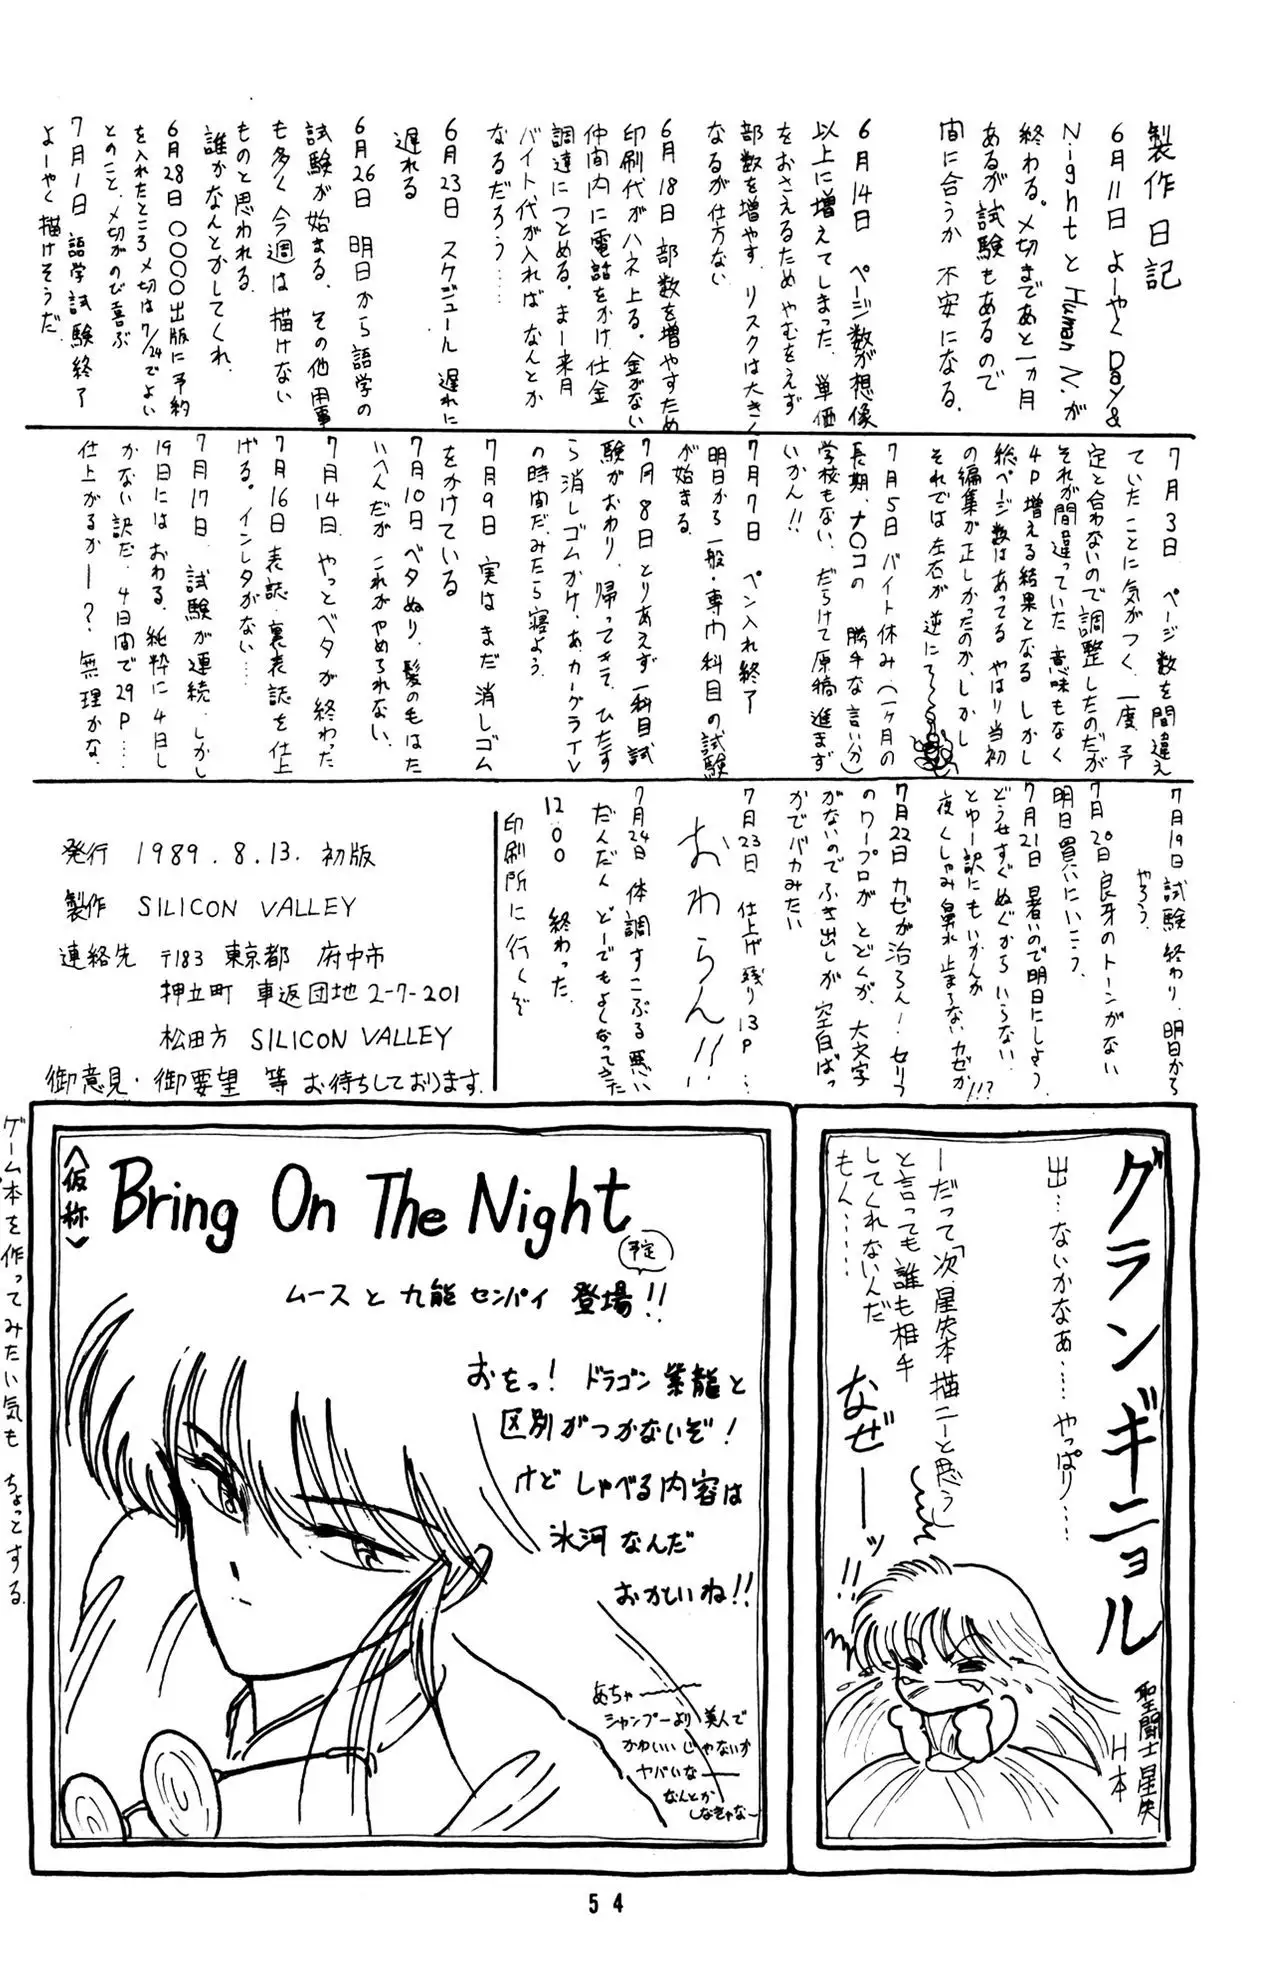 製作日記
6月11日 よーやく Day &
Night と Human N. が
終わる。〆切まであと一ヵ月
あるが試験もあるので
間に合うか 不安になる。
6月14日 ページ数が想像
以上に増えてしまった。単価
をおさえるため やむをえず
部数を増やす。リスクは大きく
なるが仕方ない
6月18日 部数を増やすため
印刷代がハネ上る。金がない
仲間内に電話をかけ、仕金
調達につとめる。まー来月
バイト代が入れば なんとか
なるだろう…
6月23日 スケジュール 遅れに
遅れる
6月26日 明日から語学の
試験が始まる。その他用事
も多く今週は描けない
ものと思われる。
誰かなんとかしてくれ。
6月28日 〇〇〇〇出版に予約
を入れたところ〆切は7/24でよい
とのこと、〆切がのび喜ぶ
7月1日 語学試験終了
よーやく描けそうだ。
7月3日 ページ数を間違え
ていたことに気がつく、一度、予
定と合わないので調整したのだが
それが間違っていた 意味もなく
4P増える結果となる しかし
総ページ数はあってる やはり当初
の編集が正しかったのか、しかし
それでは左右が 逆にて〜
7月5日 バイト休み、(一ヶ月の
長期、ナ〇コの 勝手な言い分)
学校もない、だらけて原稿進まず
いかん!!
7月7日 ペン入れ終了
明日から一般・専門科目の試験
が始まる。
7月8日 とりあえず一科目試
験がおわり、帰ってきて、ひたす
ら消しゴムかけ、あ、カーグラTV
の時間だ、みたら寝よう。
7月9日 実はまだ消しゴム
をかけている
7月10日 ベタぬり、髪の毛はた
いへんだが これがやめられない。
7月14日、やっとベタが終わった
7月16日 表誌・裏表誌を仕上
げる。インレタがない…
7月17日、試験が連続、しかし
19日にはおわる、純粋に4日し
かない訳だ、4日間で29P……
仕上がるかー?、無理かな、
7月19日 試験終わり、明日から
やろう
7月20日 良牙のトーンがない
明日買いにいこう。
7月21日 暑いので明日にしよう
どうせすぐぬぐからいらない
とゆー訳にもいかんか!!?
夜くしゃみ鼻水止まらないカゼか
7月22日 カゼが治らん!、セリフ
のワープロが とどくが、大文字
がないのでふき出しが 空白ばっ
かでバカみたい
7月23日 仕上げ残り13P…
おわらん!!
7月24日 体調すこぶる悪い
だんだん どーでもよくなってきた
12:00 終わった
印刷所に行くぞ
発行 1989.8.13. 初版
製作 SILICON VALLEY
連絡先 〒183 東京都 府中市
押立町 車返団地 2-7-201
松田方 SILICON VALLEY
御意見・御要望 等 お待ちしております.
グランギニョル
聖闘士星矢
H本
出…ないかなあ……やっぱり……
ーだって「次、星矢本描こーと思う
と言っても誰も相手
してくれないんだ
もん……
なぜーーッ!!
〈仮称〉
Bring On The Night
予定
ムースと九能センパイ 登場!!
おをっ! ドラゴン紫龍と
区別がつかないぞ!
けど しゃべる内容は
氷河なんだ
おかしいね!!
あちゃー
シャンプーより美人で
かわいいじゃないか
ヤバいなー
なんとか
しなきゃなー
ゲーム本を作ってみたい気も ちょっとする
54